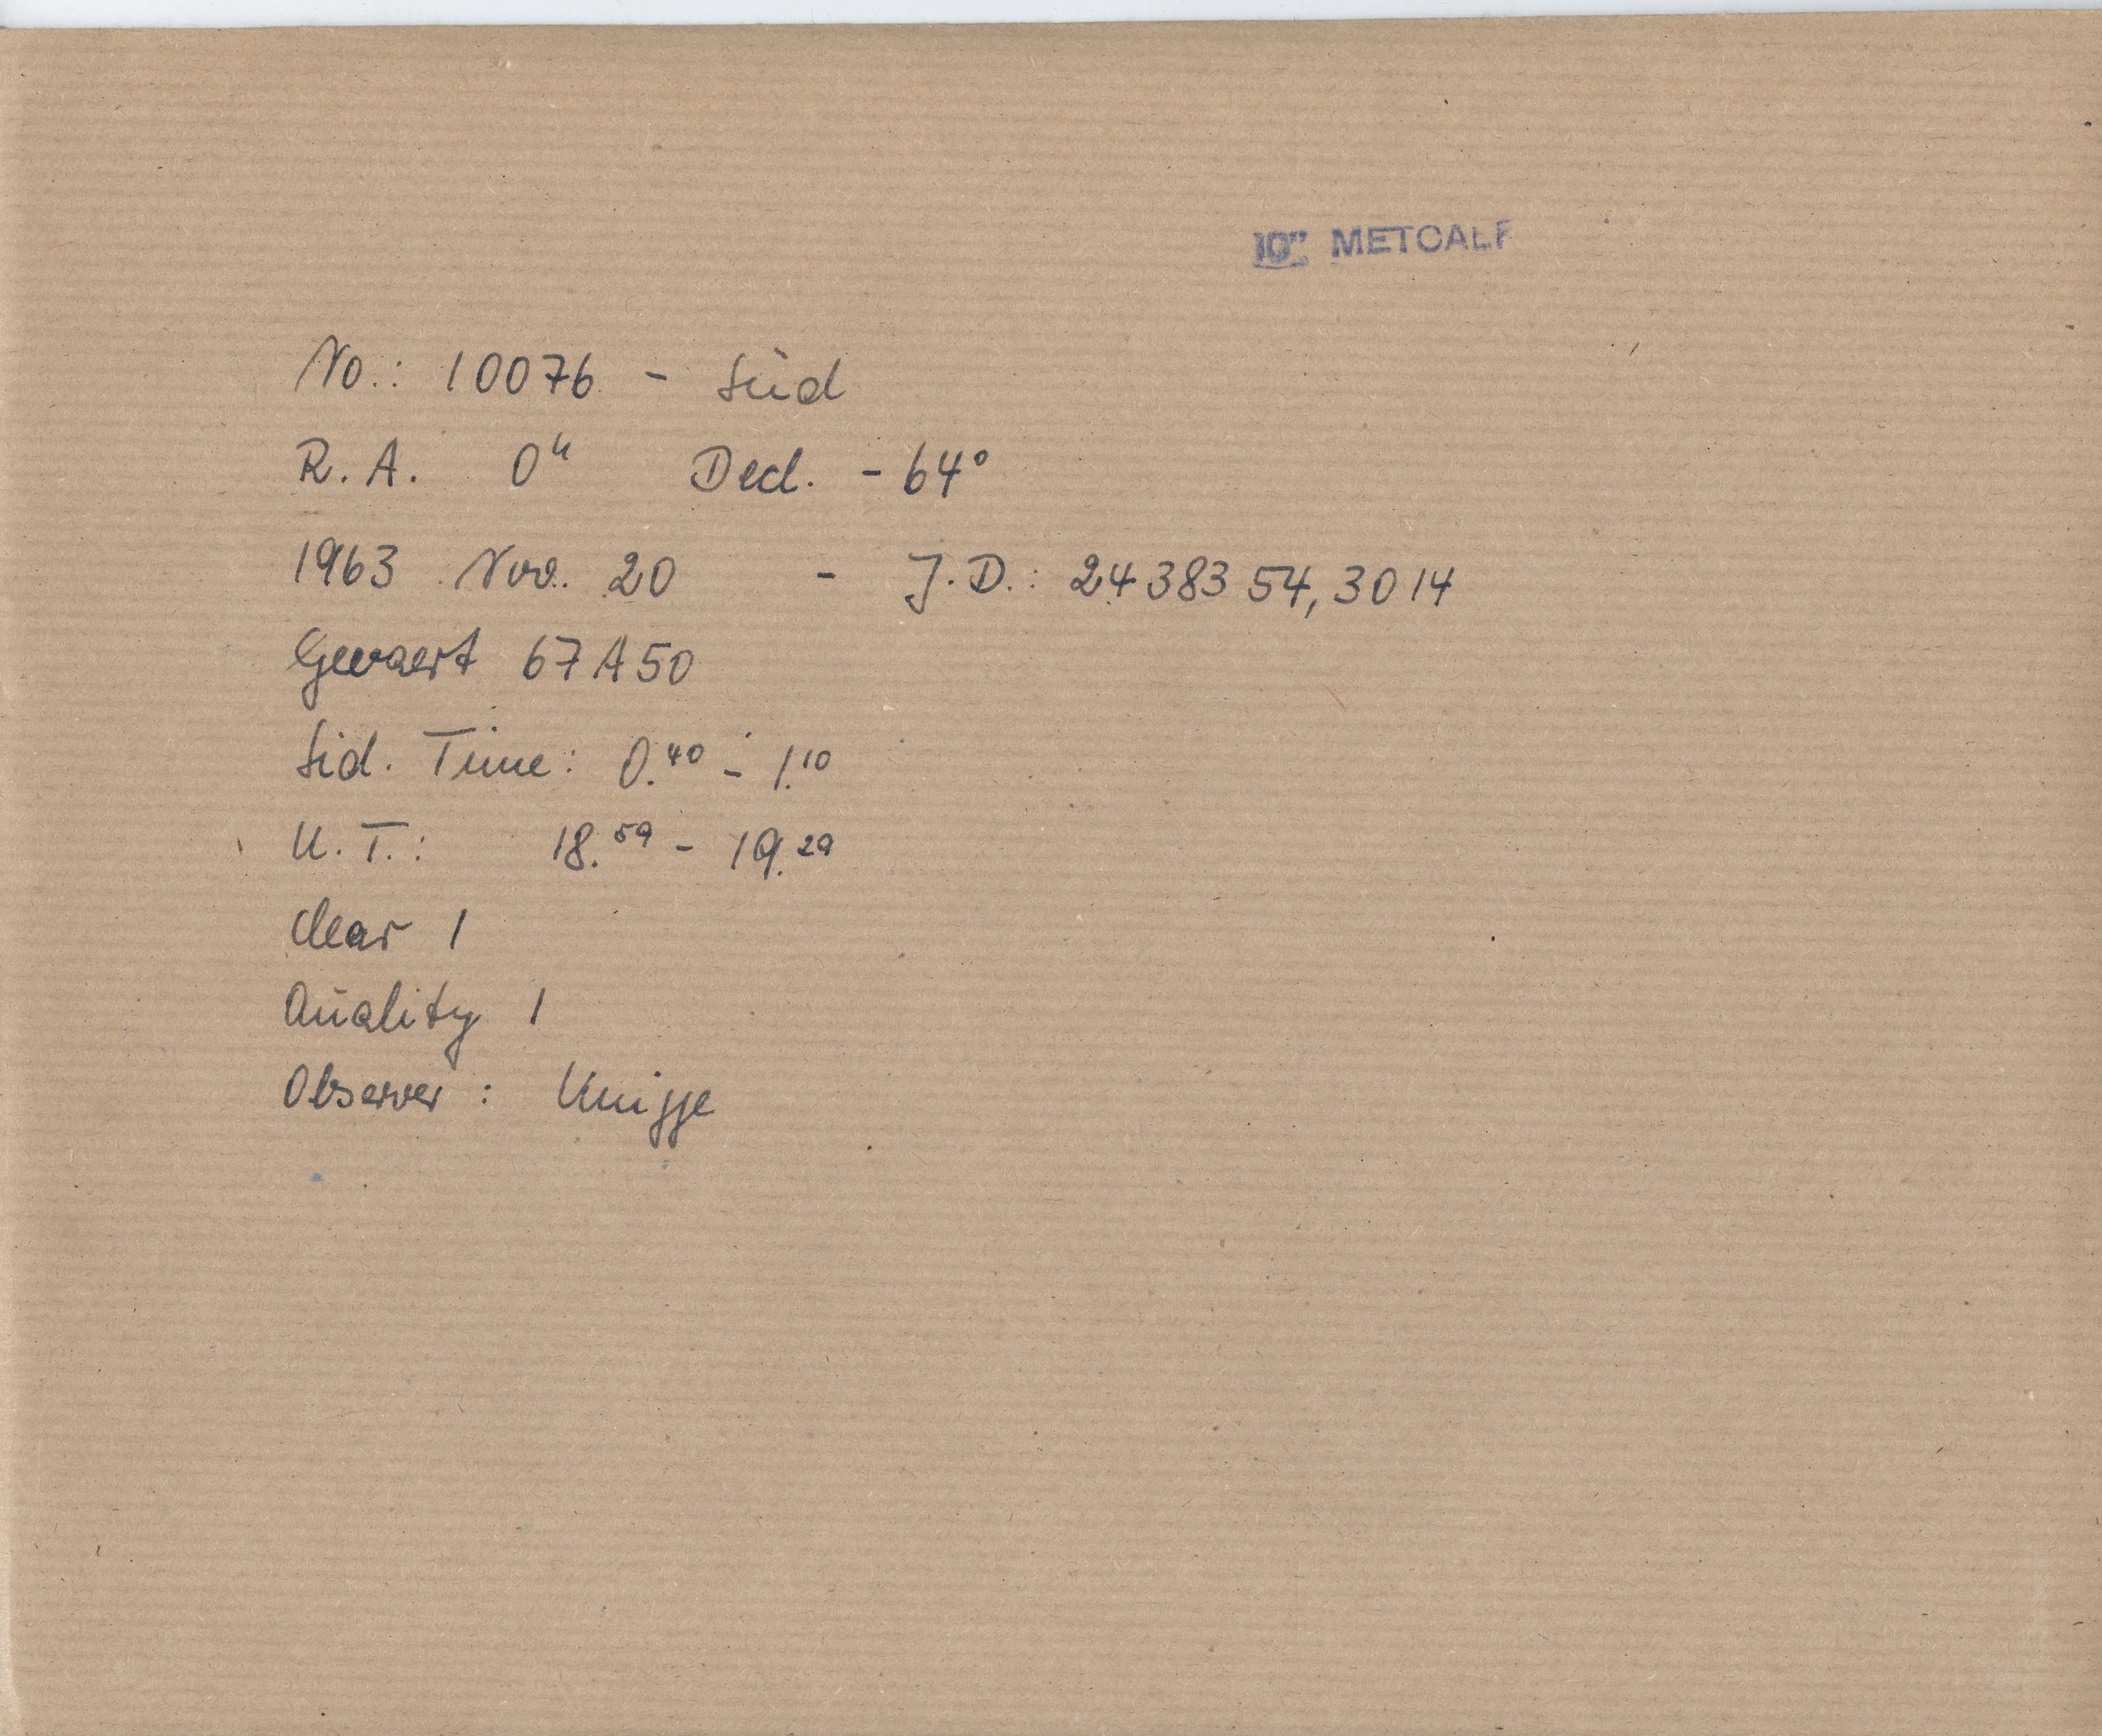 10" METCALF
No.: 10076 - Süd
R.A. 0ʰ Decl. - 64°
1963 Nov. 20 - J.D.: 2438354,3014
Gevaert 67A50
Sid. Time: 0.⁴⁰ - 1.¹⁰
U.T.: 18.⁵⁹ - 19.²⁹
clear 1
Quality 1
Observer: Knigge